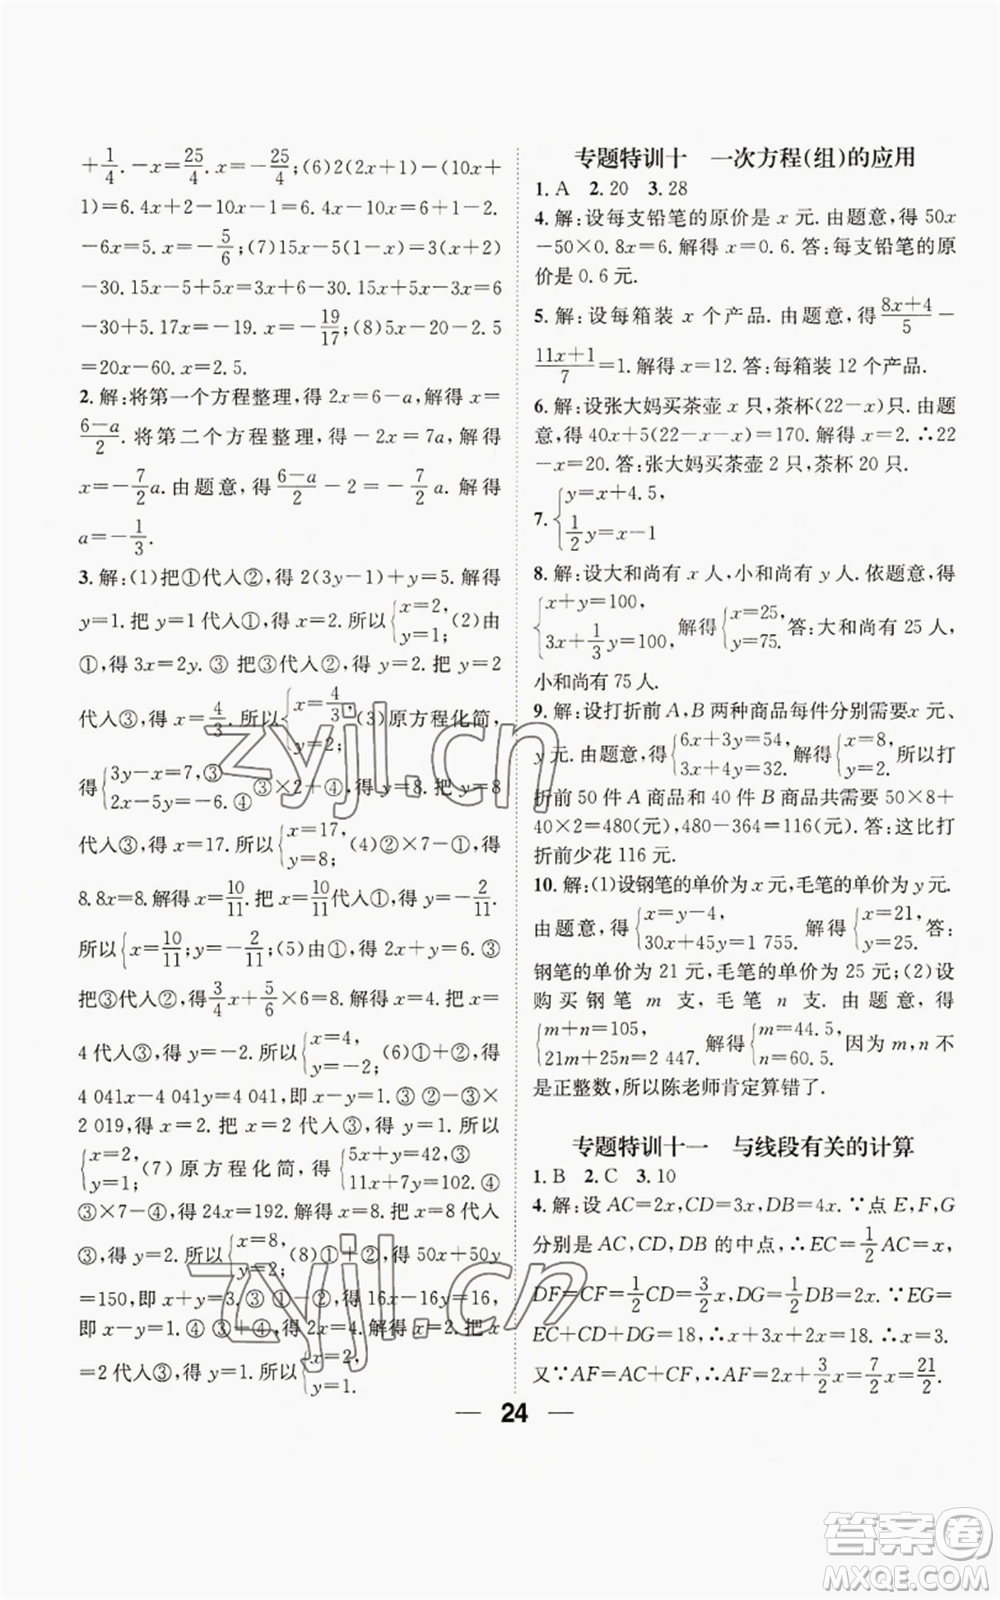 +1/4.-x=25/4.x=-25/4;(6)2(2x+1)-(10x+
1)=6.4x+2-10x-1=6.4x-10x=6-1.
-6x=5.x=-5/6;(7)15x-5(x-1)=3(x+2)
-30.15x-5x+5=3x+6-30.15x-5x-3x=6
-30-5.7x=-29... 
5=20x-60.x=2.5.
2.解:将第一个方程整理,得 2x=6-a,解得 x=
(6-a)/2.将第二个方程整理,得-2x=7a,解得
x=-7/2 a.由题意,得(6-a)/2-2=-7/2 a.解得
a=-1/3.
3.解:(1)把①代入②,得 2(3y-1)+y=5.解得
y=1.把 y=1 代入①,得 x=2.所以{x=2, y=1;(2)由
①,得 3x=2y.③ 把③代入②,得 y=2.把 y=2
代入③,得 x=4/3.所以{x=4/3, y=2;(3)原方程化简,
得{3y-x=7,③ 2x-5y=-6.④ ③×2+④,得 y=8.把 y=8
代入③,得 x=17.所以{x=17, y=8;(4)②×7-①,得
8.8x=8.解得 x=10/11.把 x=10/11代入①,得 y=-2/11.
所以{x=10/11;y=-2/11;(5)由①,得 2x+y=6.③
把③代入②,得3/4 x+5/6×6=8.解得 x=4.把 x=
4 代入③,得 y=-2.所以{x=4, y=-2;(6)②-①,得
4 041x-4 041y=4 041,即 x-y=1.③ ②-③×
2 019,得 x=2.把 x=2 代入③,得 y=1.所以
{x=2, y=1;(7)原方程化简,得{5x+7y=47,③ 11x-7y=102.④
③×7-④,得 24x=192.解得 x=8.把 x=8 代入
③,得 y=2.所以{x=8, y=2;(8)①+②,得 50x+50y
=150,即 x+y=3.③ ①-②,得 16x-16y=16,
即 x-y=1.④ ③+④,得 2x=4.解得 x=2.把 x
=2 代入③,得 y=1.所以{x=2, y=1.
专题特训十 一次方程(组)的应用
1.A 2.20 3.28
4.解:设每支铅笔的原价是 x 元.由题意,得 50x
-50×0.8x=6.解得 x=0.6.答:每支铅笔的原
价是 0.6 元.
5.解:设每箱装 x 个产品.由题意,得(8x+4)/5-
(11x+1)/7=1.解得 x=12.答:每箱装 12 个产品.
6.解:设张大妈买茶壶 x 只,茶杯(22-x)只.由题
意,得 40x+5(22-x-x)=170.解得 x=2.∴22
-x=20.答:张大妈买茶壶 2 只,茶杯 20 只.
7.{y=x+4.5, 1/2 y=x-1
8.解:设大和尚有 x 人,小和尚有 y 人.依题意,得
{x+y=100, 3x+1/3 y=100,解得{x=25, y=75.答:大和尚有 25 人,
小和尚有 75 人.
9.解:设打折前 A,B 两种商品每件分别需要x 元、
y 元.由题意,得{6x+3y=54, 3x+4y=32.解得{x=8, y=2.所以打
折前 50 件 A 商品和 40 件 B 商品共需要 50×8+
40×2=480(元),480-364=116(元).答:这比打
折前少花 116 元.
10.解:(1)设钢笔的单价为 x 元,毛笔的单价为 y 元.
由题意,得{x=y-4, 30x+45y=1 755.解得{x=21, y=25.答:
钢笔的单价为 21 元,毛笔的单价为 25 元;(2)设
购买钢笔 m 支,毛笔 n 支.由题意,得
{m+n=105, 21m+25n=2 447.解得{m=44.5, n=60.5.因为 m,n 不
是正整数,所以陈老师肯定算错了.
专题特训十一 与线段有关的计算
1.B 2.C 3.10
4.解:设 AC=2x,CD=3x,DB=4x.∵点 E,F,G
分别是 AC,CD,DB 的中点,∴EC=1/2 AC=x,
DF=CF=1/2 CD=3/2 x,DG=1/2 DB=2x.∵EG=
EC+CD+DG=18,∴x+3x+2x=18.∴x=3.
又∵AF=AC+CF,∴AF=2x+3/2 x=7/2 x=21/2.
24
zyjl.cn
zyjl.cn
答案圈
MXQE.COM